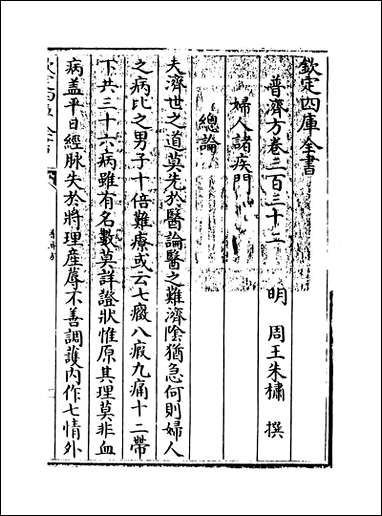 欽定四庫全書
普濟方卷三百三十二
明 周王朱橚 撰
婦人諸疾門
總論
夫濟世之道莫先於醫論醫之難濟陰猶急何則婦人
之病比之男子十倍難療或云七癥八瘕九痛十二帶
下共三十六病雖有名數莫詳證狀惟原其理莫非血
病盖平日經脉失於將理産蓐不善調護内作七情外